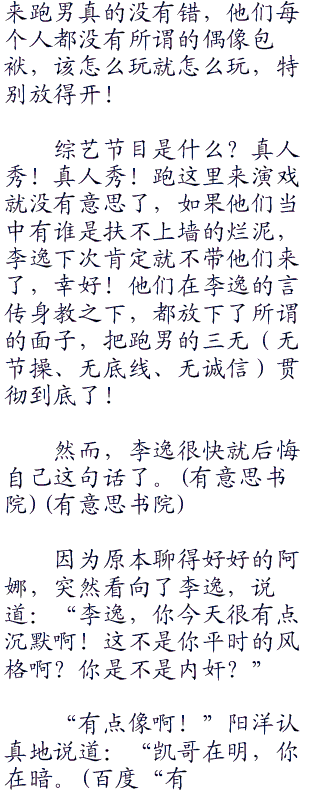 来跑男真的没有错，他们每
个人都没有所谓的偶像包
袱，该怎么玩就怎么玩，特
别放得开！
综艺节目是什么？真人
秀！真人秀！跑这里来演戏
就没有意思了，如果他们当
中有谁是扶不上墙的烂泥，
李逸下次肯定就不带他们来
了，幸好！他们在李逸的言
传身教之下，都放下了所谓
的面子，把跑男的三无（无
节操、无底线、无诚信）贯
彻到底了！
然而，李逸很快就后悔
自己这句话了。(有意思书
院)(有意思书院)
因为原本聊得好好的阿
娜，突然看向了李逸，说
道：“李逸，你今天很有点
沉默啊！这不是你平时的风
格啊？你是不是内奸？”
“有点像啊！”阳洋认
真地说道：“凯哥在明，你
在暗。(百度“有